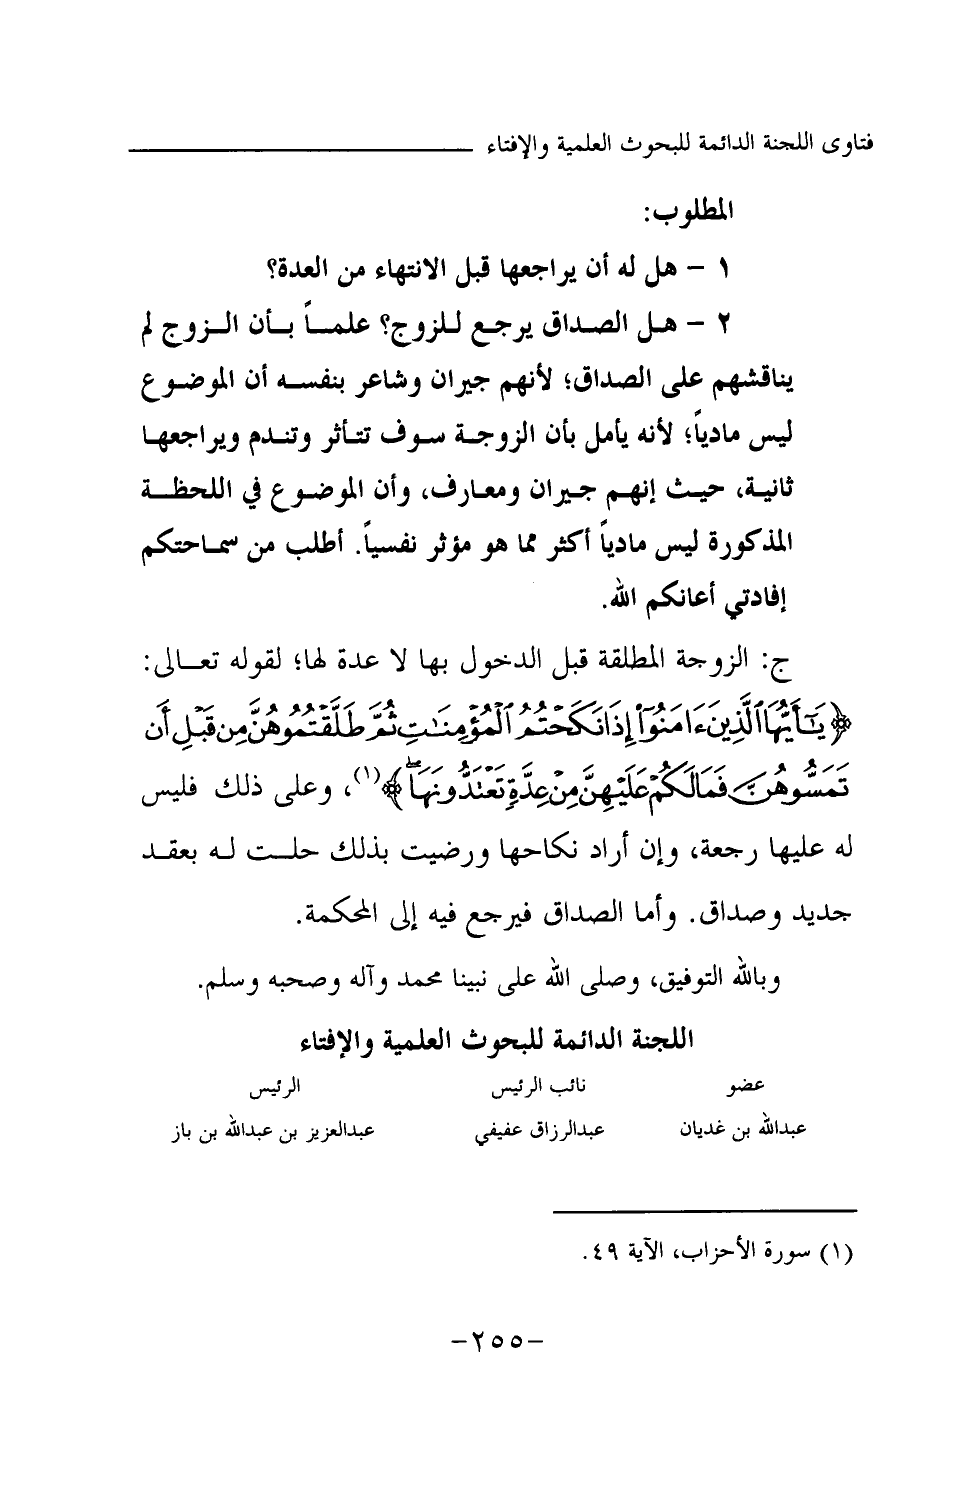 فتاوى اللجنة الدائمة للبحوث العلمية والإفتاء
المطلوب:
١ – هل له أن يراجعها قبل الانتهاء من العدة؟
٢ – هل الصداق يرجع للزوج؟ علماً بأن الزوج لم
يناقشهم على الصداق؛ لأنهم جيران وشاعر بنفسه أن الموضوع
ليس مادياً؛ لأنه يأمل بأن الزوجة سوف تتأثر وتندم ويراجعها
ثانية، حيث إنهم جيران ومعارف، وأن الموضوع في اللحظة
المذكورة ليس مادياً أكثر مما هو مؤثر نفسياً. أطلب من سماحتكم
إفادتي أعانكم الله.
ج: الزوجة المطلقة قبل الدخول بها لا عدة لها؛ لقوله تعالى:
﴿يَٰٓأَيُّهَا ٱلَّذِينَ ءَامَنُوٓا۟ إِذَا نَكَحْتُمُ ٱلْمُؤْمِنَٰتِ ثُمَّ طَلَّقْتُمُوهُنَّ مِن قَبْلِ أَن
تَمَسُّوهُنَّ فَمَا لَكُمْ عَلَيْهِنَّ مِنْ عِدَّةٍ تَعْتَدُّونَهَا ۖ﴾(١)، وعلى ذلك فليس
له عليها رجعة، وإن أراد نكاحها ورضيت بذلك حلت له بعقد
جديد وصداق. وأما الصداق فيرجع فيه إلى المحكمة.
وبالله التوفيق، وصلى الله على نبينا محمد وآله وصحبه وسلم.
اللجنة الدائمة للبحوث العلمية والإفتاء
عضو نائب الرئيس الرئيس
عبدالله بن غديان عبدالرزاق عفيفي عبدالعزيز بن عبدالله بن باز
(١) سورة الأحزاب، الآية ٤٩.
–٢٥٥–